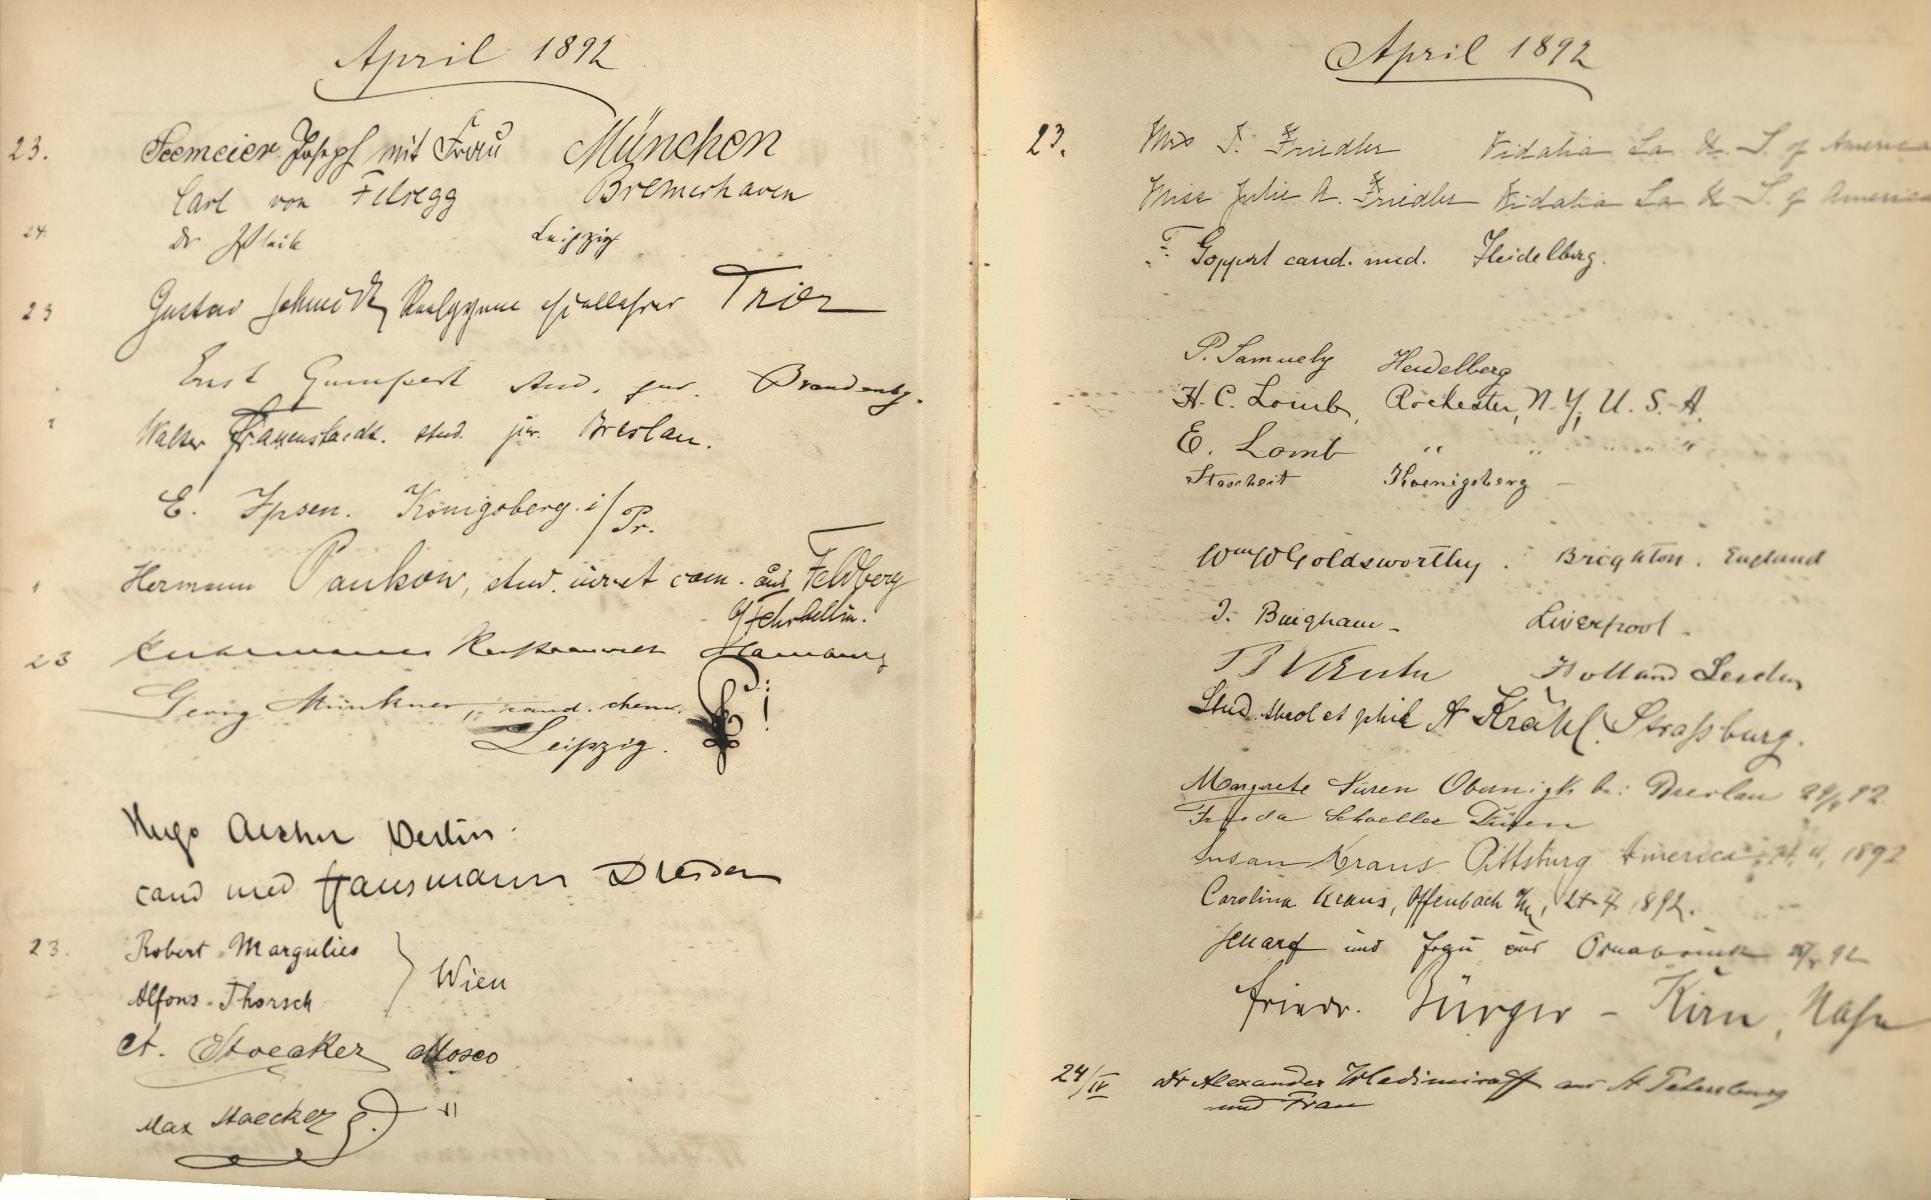 April 1892
23. Seemeier Joseph mit Frau München
Carl von Felsegg Bremerhaven
24. Dr Leipzig
23 Gustav Schmidt Trier
Ernst Gumpert stud. jur. Brandenbg.
Walter Frauenstaedt. stud. jur. Breslau.
E. Ipsen. Königsberg i/Pr.
Hermann Pankow, stud. iur. et cam. aus Feldberg
b/Fehrbellin.
23 Rechtsanwalt Hamburg
Georg Münkner, cand. chem. !
Leipzig.
Hugo Berlin.
cand med Hausmann Dresden
23. Robert Margulies
Wien
Alfons Thorsch
A. Stoecker Mosco
Max Stoecker "
April 1892
23. Mrs S. Friedler Vidalia La U. S. of America
Miss Julie A. Friedler Vidalia La U. S. of America
F Goppert cand. med. Heidelberg.
P. Samuely Heidelberg
H. C. Lomb, Rochester, N. Y, U. S. A.
E. Lomb " " "
Stoscheit Koenigsberg –
Wm W Goldsworthy. Brighton. England
J. Bingham – Liverpool –
Holland Leiden
Stud. theol et phil A Krähl. Straßburg.
Margarete Süren Obernigk bei Breslau 24/4 92
Frieda Schoeller Düren
Susan Kraus Pittsburg America 24, 4, 1892
Carolina Kraus, Offenbach a/M, 24 4 1892.
und Frau aus Osnabrück 92
Friedr. Bürger – Kirn, Nahe
24/IV Dr Alexander Wladimiroff aus St Petersburg
und Frau